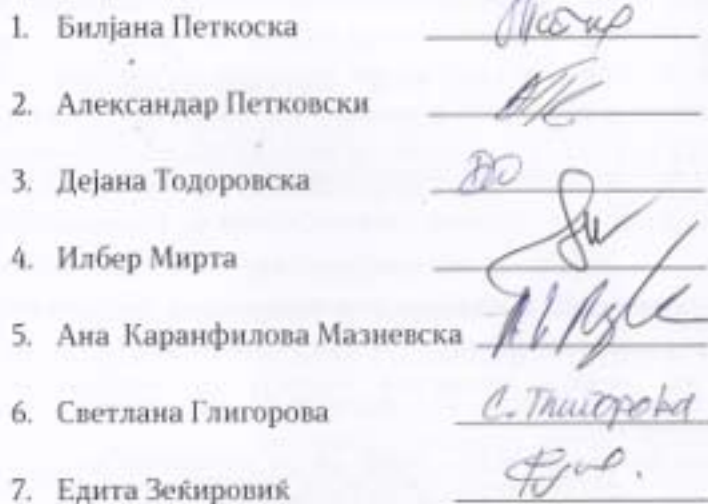 1. Билјана Петкоска
2. Александар Петковски
3. Дејана Тодоровска
4. Илбер Мирта
5. Ана Каранфилова Мазневска
6. Светлана Глигорова С. Глигорова
7. Едита Зеќировиќ